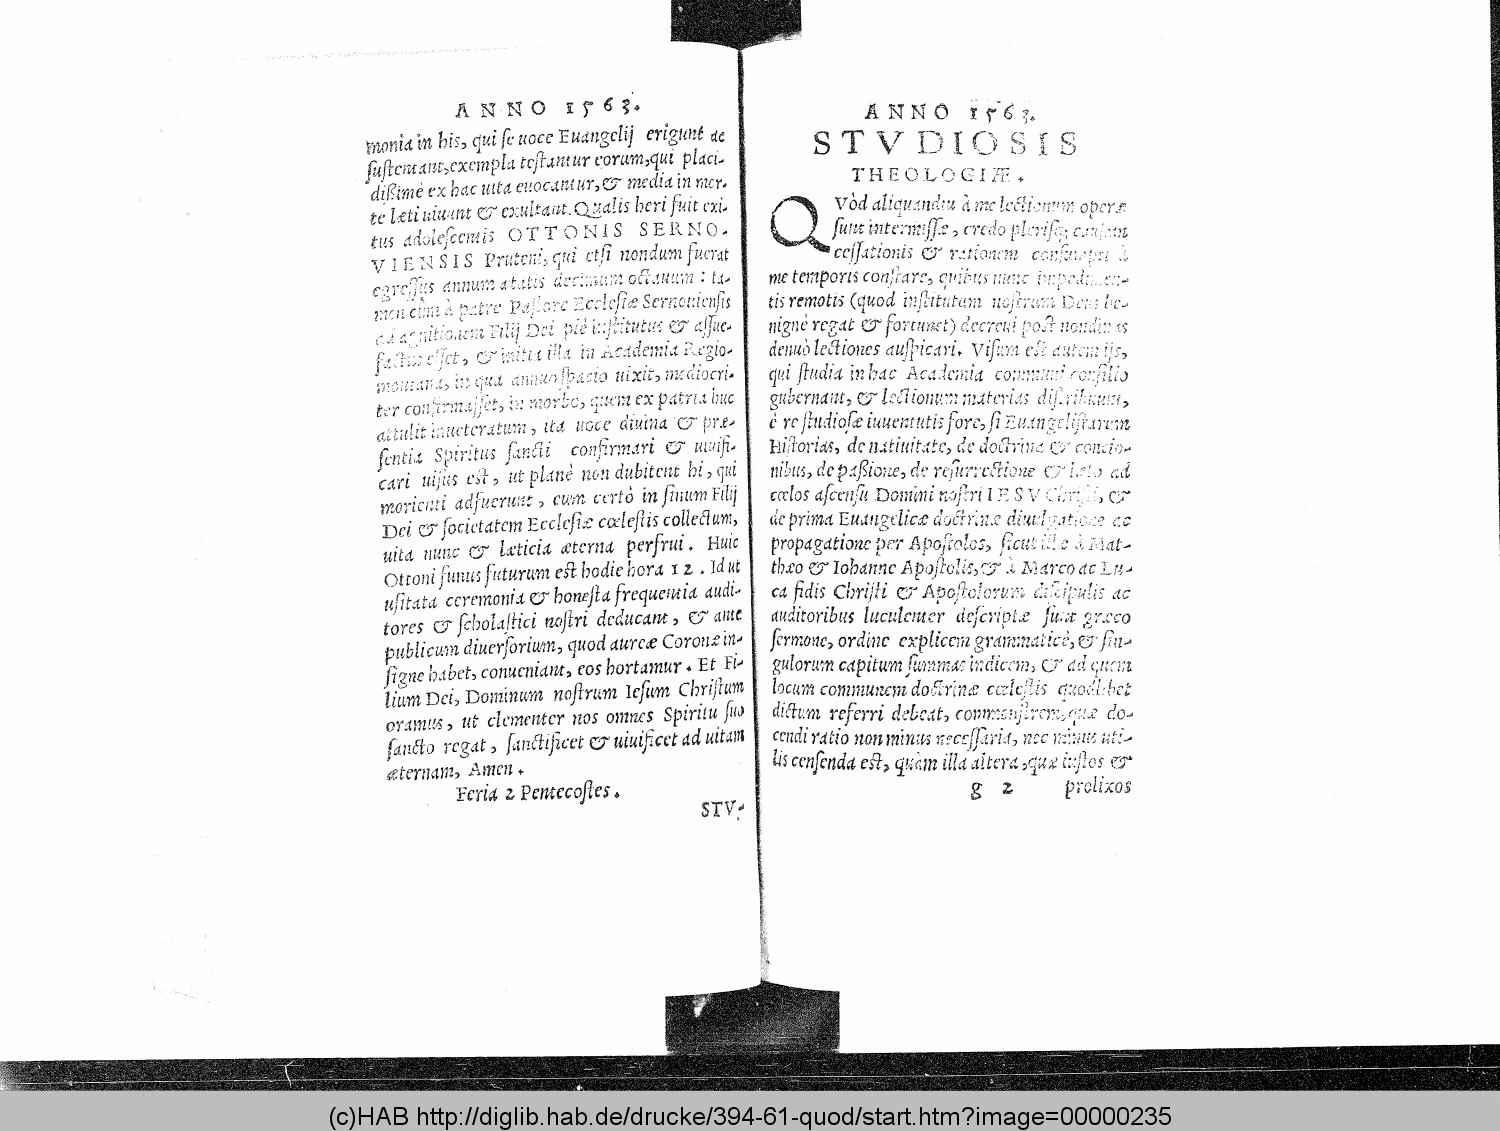 ANNO 1563.
monia in his, qui se uoce Euangelij erigunt ac
sustentant, exempla testantur eorum, qui placi-
dißimè ex hac uita euocantur, & media in mor-
te læti uiuunt & exultant. Qualis heri fuit exi-
tus adolescentis OTTONIS SERNO-
VIENSIS Pruteni, qui etsi nondum fuerat
egressus annum ætatis decimum octauum: ta-
men cùm à patre Pastore Ecclesiæ Sernouiensis
ad agnitionem Filij Dei piè institutus & assue-
factus esset, & initia illa in Academia Regio-
montana, in qua annuo spacio uixit, mediocri-
ter confirmasset, in morbo, quem ex patria huc
attulit inueteratum, ita uoce diuina & præ-
sentia Spiritus sancti confirmari & uiuifi-
cari uisus est, ut planè non dubitent hi, qui
morienti adfuerunt, eum certò in sinum Filij
Dei & societatem Ecclesiæ cœlestis collectum,
uita nunc & læticia æterna perfrui. Huic
Ottoni funus futurum est hodie hora 12. Id ut
usitata ceremonia & honesta frequentia audi-
tores & scholastici nostri deducant, & ante
publicum diuersorium, quod aureæ Coronæ in-
signe habet, conueniant, eos hortamur. Et Fi-
lium Dei, Dominum nostrum Iesum Christum
oramus, ut clementer nos omnes Spiritu suo
sancto regat, sanctificet & uiuificet ad uitam
æternam, Amen.
Feria 2 Pentecostes.
STV-
ANNO 1563.
STVDIOSIS
THEOLOGIÆ.
QVòd aliquandiu à me lectionum operæ
sunt intermissæ, credo plerisq; causam
cessationis & rationem consumpti à
me temporis constare, quibus nunc impedimen-
tis remotis (quod institutum nostrum Deus be-
nignè regat & fortunet) decreui post nundinas
denuò lectiones auspicari. Visum est autem ijs,
qui studia in hac Academia communi consilio
gubernant, & lectionum materias distribuunt,
è re studiosæ iuuentutis fore, si Euangelistarum
Historias, de natiuitate, de doctrina & concio-
nibus, de paßione, de resurrectione & læto ad
cœlos ascensu Domini nostri IESV Christi, &
de prima Euangelicæ doctrinæ diuulgatione ac
propagatione per Apostolos, sicut illæ à Mat-
thæo & Iohanne Apostolis, & à Marco ac Lu-
ca fidis Christi & Apostolorum discipulis ac
auditoribus luculenter descriptæ sunt græco
sermone, ordine explicem grammaticè, & sin-
gulorum capitum summas indicem, & ad quem
locum communem doctrinæ cœlestis quodlibet
dictum referri debeat, commonstrem, quæ do-
cendi ratio non minus necessaria, nec minus uti-
lis censenda est, quàm illa altera, quæ iustos &
g 2 prolixos
(c)HAB http://diglib.hab.de/drucke/394-61-quod/start.htm?image=00000235